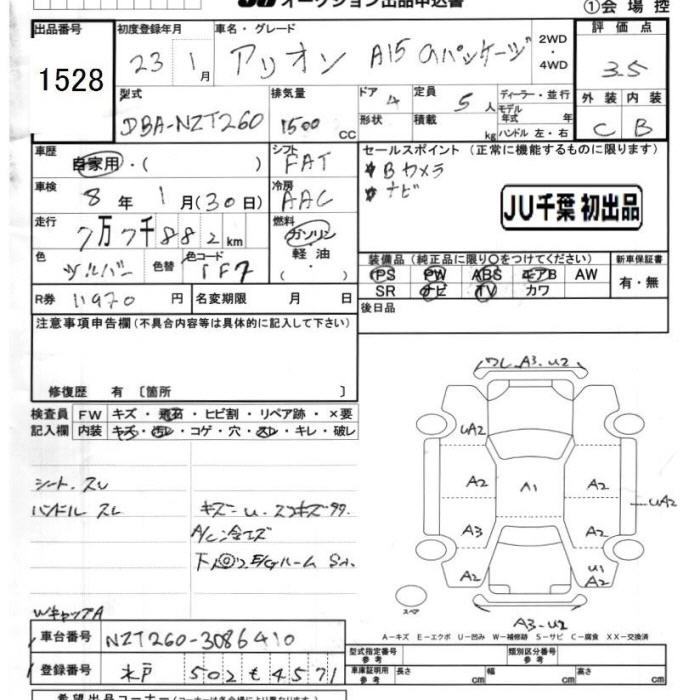 オークション出品申込書
①会場控
出品番号 1528
初度登録年月 23 1月
車名・グレード アリオン A15 Gパッケージ
2WD・4WD
評価点 3.5
外装 C 内装 B
型式 DBA-NZT260
排気量 1500 cc
ドア 4
形状
定員 5人
積載 kg
ディーラー・並行
モデル年式 年
ハンドル 左・右
車歴 自家用・( )
シフト FAT
車検 8年 1月(30日)
冷房 AAC
走行 7万7千882km
燃料 ガソリン・軽油・( )
色 シルバー 色替 色コード 1F7
R券 11970円 名変期限 月 日
セールスポイント(正常に機能するものに限ります)
Bカメラ
ナビ
JU千葉 初出品
装備品(純正品に限り○をつけてください)
PS PW ABS エアB AW
SR ナビ TV カワ
新車保証書 有・無
後日品
注意事項申告欄(不具合内容等は具体的に記入して下さい)
修復歴 有〔箇所 〕
検査員記入欄
FW キズ・飛石・ヒビ割・リペア跡・×要
内装 キズ・汚レ・コゲ・穴・スレ・キレ・破レ
シート スレ
ハンドル スレ
A/C冷エズ
WキャップA
ワレ A3.U2
UA2
A2
A3
A2
A1
A2
A2
U1
A2
UA2
スペア
A3.U2
A-キズ E-エクボ U-凹み W-補修跡 S-サビ C-腐食 XX-交換済
車台番号 NZT260-3086410
登録番号 水戸 502 も 4571
型式指定番号 参考
類別区分番号 参考
車庫証明用 参考 長さ cm 幅 cm 高さ cm
希望出品コーナー